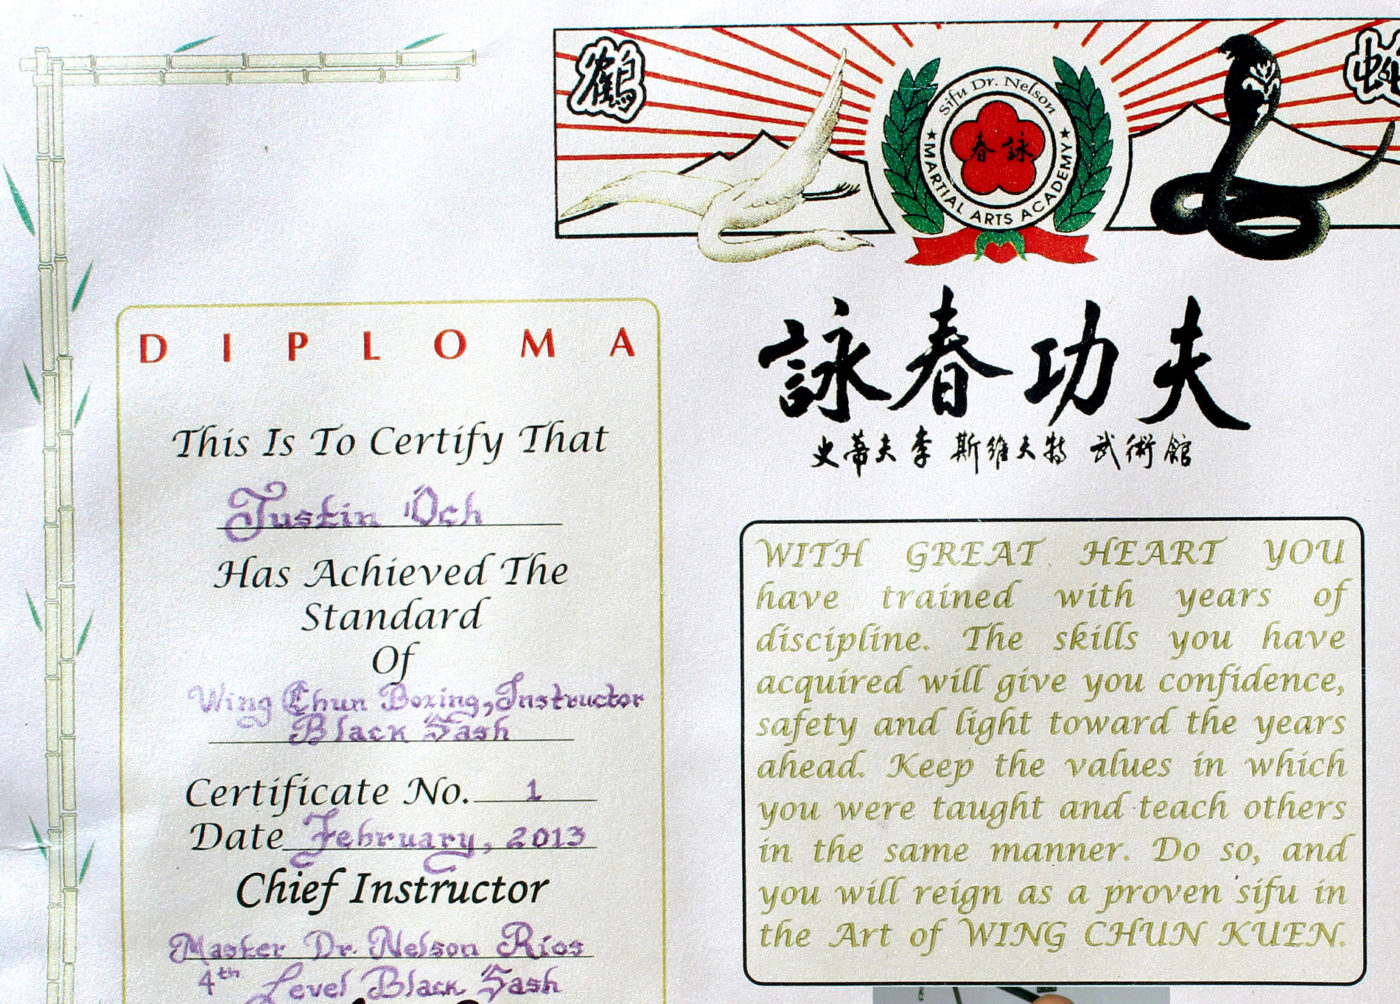 鶴
蛇
Sifu Dr. Nelson
春詠
★ MARTIAL ARTS ACADEMY ★
詠春功夫
史蒂夫李 斯維夫特 武術館
DIPLOMA
This Is To Certify That
Justin Och
Has Achieved The
Standard
Of
Wing Chun Boxing, Instructor
Black Sash
Certificate No. 1
Date February, 2013
Chief Instructor
Master Dr. Nelson Rios
4th Level Black Sash
WITH GREAT HEART YOU
have trained with years of
discipline. The skills you have
acquired will give you confidence,
safety and light toward the years
ahead. Keep the values in which
you were taught and teach others
in the same manner. Do so, and
you will reign as a proven sifu in
the Art of WING CHUN KUEN.